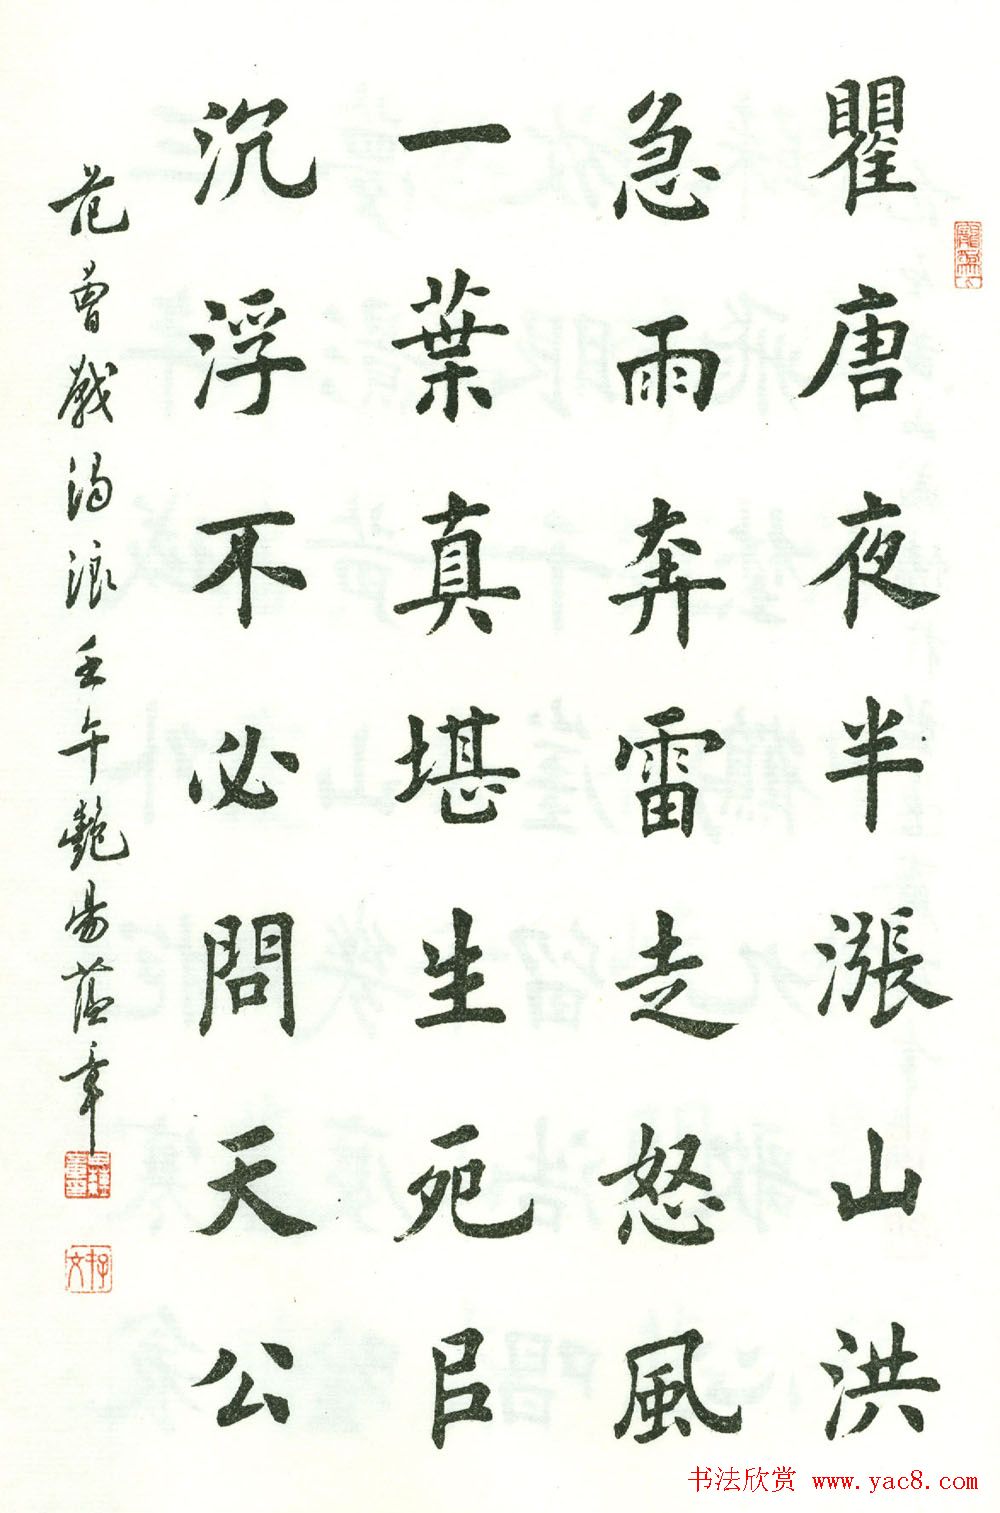 瞿唐夜半漲山洪
急雨奔雷走怒風
一葉真堪生死㠯
沉浮不必問天公
范曾戲浪壬午艷蘊章
书法欣赏 www.yac8.com